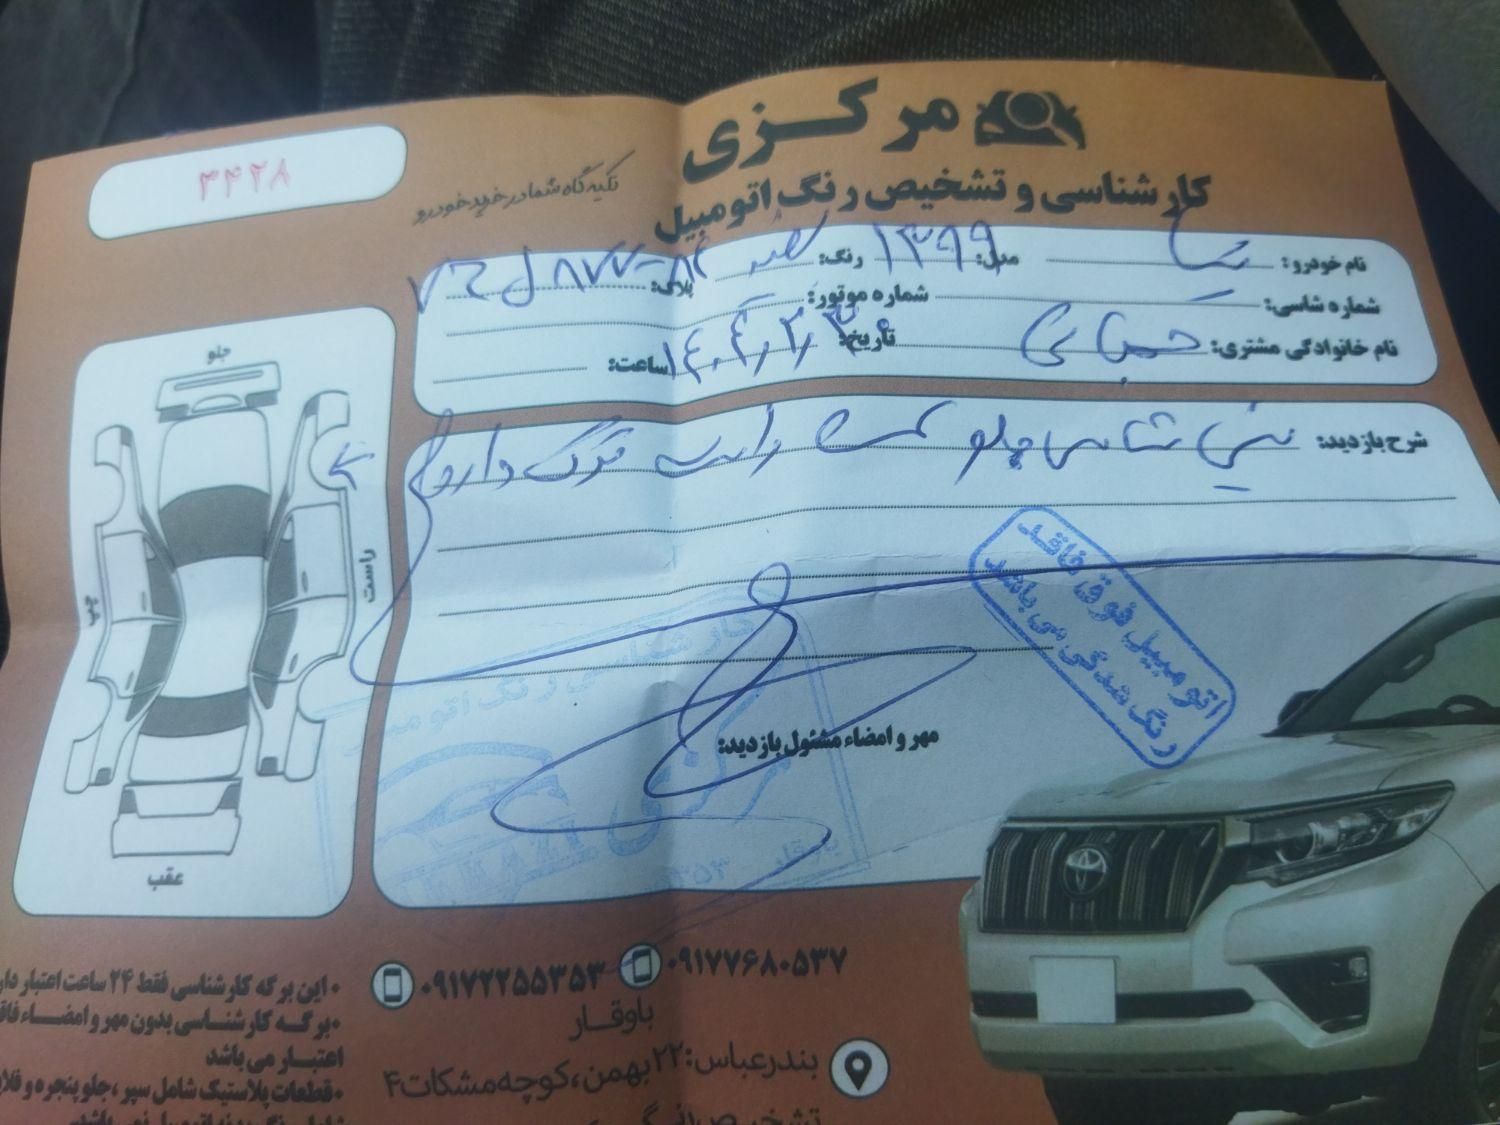 مرکزی
کارشناسی و تشخیص رنگ اتومبیل
تکیه گاه شما در خرید خودرو
۳۴۲۸
نام خودرو: مدل: ۱۳۹۹ رنگ: سفید پلاک:
شماره شاسی: شماره موتور:
نام خانوادگی مشتری: تاریخ: ۱۴۰۴٫۲٫۳۰ ساعت:
شرح بازدید: سینی شاسی جلو سمت راست ترک دارد
اتومبیل فوق فاقد
رنگ شدگی می باشد
مهر و امضاء مسئول بازدید:
کارشناسی رنگ اتومبیل
مرکزی
باوقار
جلو
راست
چپ
عقب
۰۹۱۷۷۶۸۰۵۳۷
۰۹۱۷۲۲۵۵۳۵۳
باوقار
بندرعباس: ۲۲ بهمن، کوچه مشکات ۴
• این برگه کارشناسی فقط ۲۴ ساعت اعتبار
• برگه کارشناسی بدون مهر و امضاء
اعتبار می باشد
• قطعات پلاستیک شامل سپر، جلو پنجره و